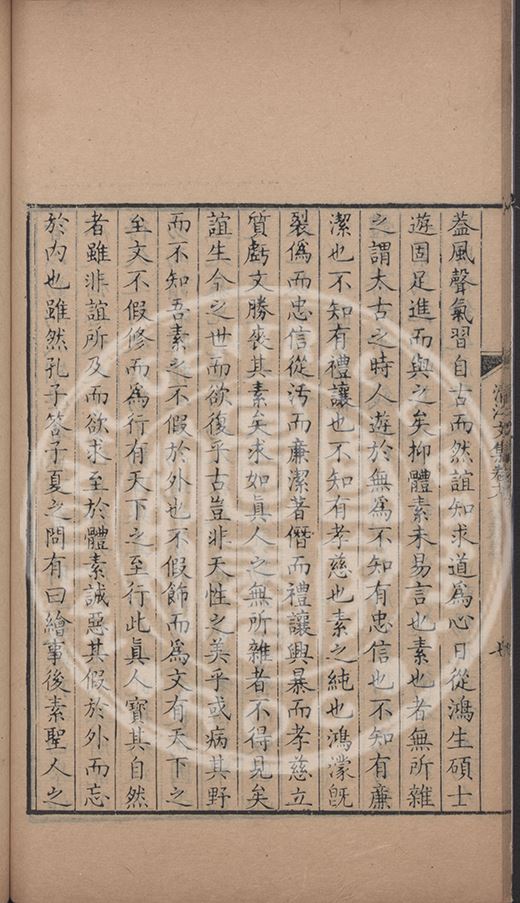 蓋風聲氣習自古而然誼知求道爲心日從鴻生碩士
遊固足進而與之矣抑體素未易言也素也者無所雜
之謂太古之時人遊於無爲不知有忠信也不知有廉
潔也不知有禮讓也不知有孝慈也素之純也鴻濛旣
裂僞而忠信從汚而廉潔著僭而禮讓興暴而孝慈立
質虧文勝喪其素矣求如眞人之無所雜者不得見矣
誼生今之世而欲復乎古豈非天性之美乎或病其野
而不知吾素之不假於外也不假飾而爲文有天下之
至文不假修而爲行有天下之至行此眞人寶其自然
者雖非誼所及而欲求至於體素誠惡其假於外而忘
於內也雖然孔子答子夏之問有曰繪事後素聖人之